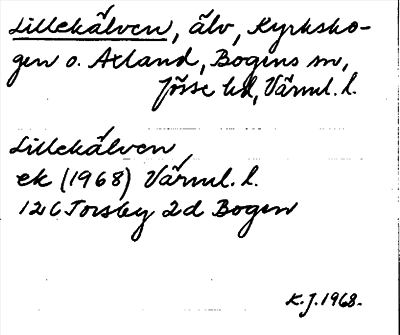 Lillekälven, älv, Kyrksko-
gen o. Axland, Bogens sn,
Jösse hd, Värml. l.
Lillekälven
ek (1968) Värml. l.
12C Torsby 2d Bogen
K.J. 1968.